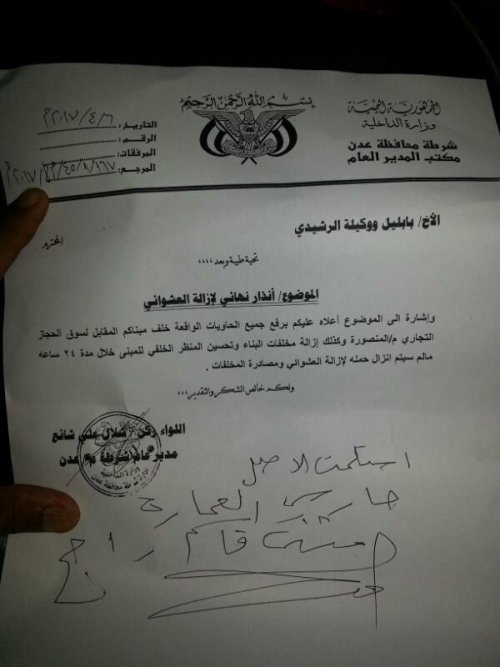 بسم الله الرحمن الرحيم
الجمهورية اليمنية
وزارة الداخلية
شرطة محافظة عدن
مكتب المدير العام
التاريخ: ٢٠١٧/٤/٦م
الرقم:
المرفقات:
المرجع:
الأخ/ بابليل ووكيلة الرشيدي
المحترم
تحية طيبة وبعد ،،،،
الموضوع/ أنذار نهائي لإزالة العشوائي
وإشارة الى الموضوع أعلاه عليكم برفع جميع الحاويات الواقعة خلف مبناكم المقابل لسوق الحجاز
التجاري م/المنصورة وكذلك إزالة مخلفات البناء وتحسين المنظر الخلفي للمبنى خلال مدة ٢٤ ساعه
مالم سيتم انزال حمله لإزالة العشوائي ومصادرة المخلفات .
ولكم خالص الشكر والتقدير،،،
اللواء ركن/ شلال علي شائع
مدير عام شرطة م/ عدن
استلمت الاصل
حارس العمارة